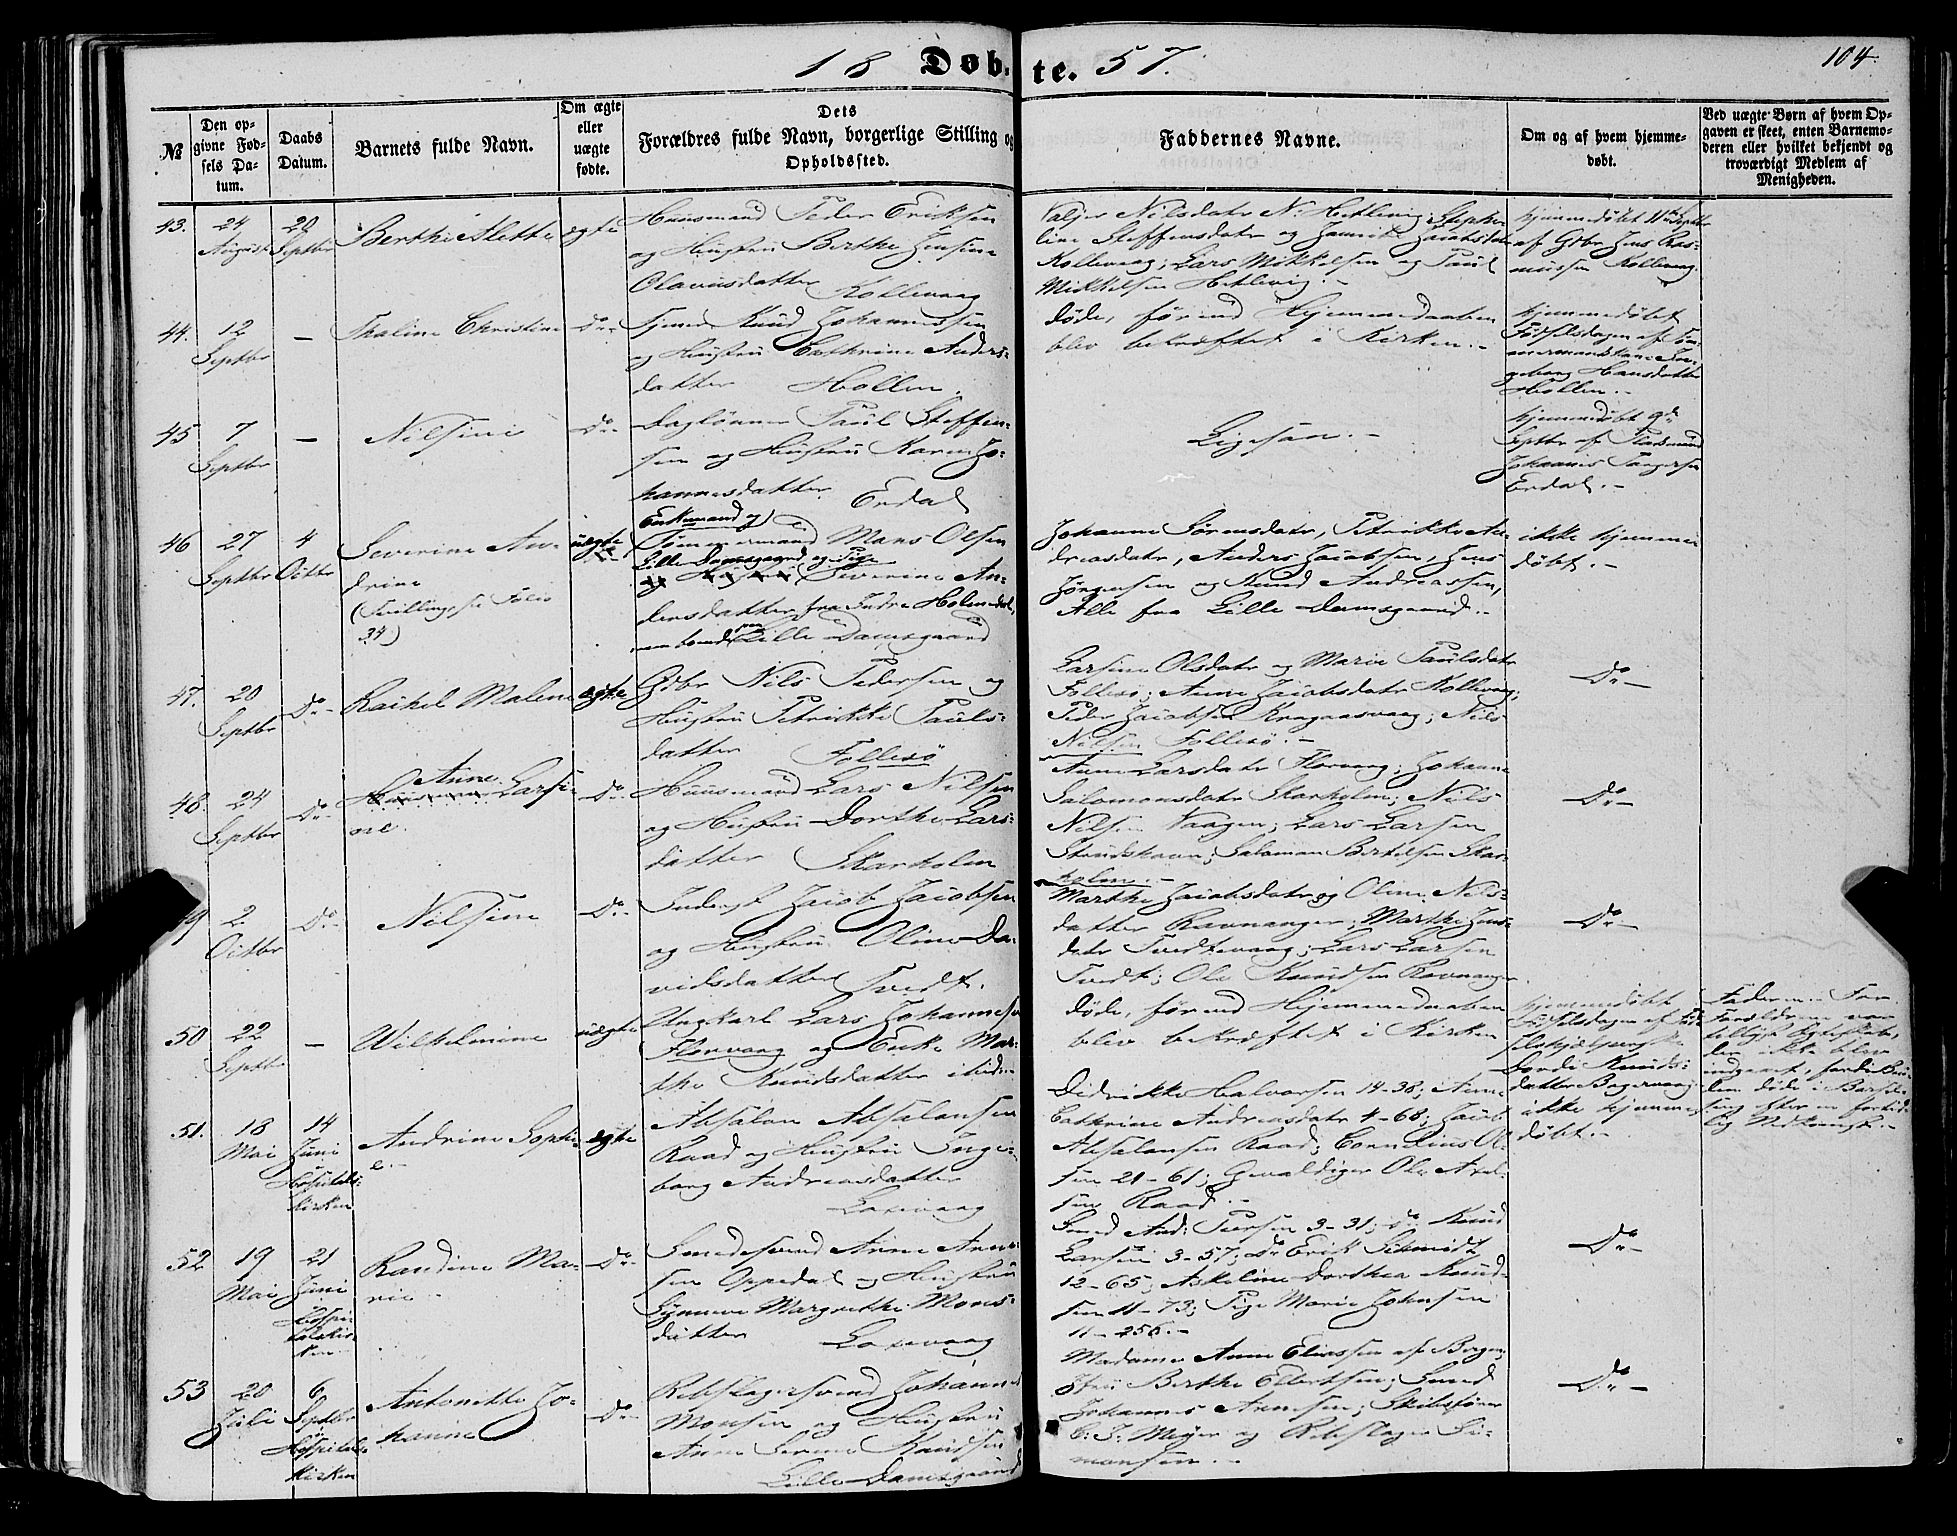 18 Døbte. 57.
104.
№
Den op-
givne Fød-
sels Da-
tum.
Daabs
Datum.
Barnets fulde Navn.
Om ægte
eller
uægte
fødte.
Dets
Forældres fulde Navn, borgerlige Stilling og
Opholdssted.
Faddernes Navne.
Om og af hvem hjemme-
døbt.
Ved uægte Børn af hvem Op-
gaven er skeet, enten Barnemo-
deren eller hvilket bekjendt og
troværdigt Medlem af
Menigheden.
43.
24
August
20
Septbr
Berthe Alette
egte
Huusmand Peder Ericksen
og Hustru Berthe Jensine
Olausdatter Kollevaag
Nilsdatr N: Hetlevig; Stepha-
line Steffensdatr og Jannike Jacobsdatr
Kollevaag; Lars Mikkelsen og Paul
Mikkelsen Hetlevig.-
hjemmedøbt 11te Septbr
af Gdbr Jens Ras-
mussen Kollevaag.
44.
12
Septbr
-
Thaline Christine
Do-
Knud Johannessen
og Hustru Cathrine Anders-
datter Hollen.
døde, førend Hjemmedaaben
blev bekræftet i Kirken.-
hjemmedøbt
Fødselsdagen af Tøm-
mermandskone In-
geborg Hansdatter
Hollen.-
45
7
Septbr
-
Nilsine
Do-
Daglønner Paul Steffen-
sen og Hustru Karen Jo-
hannesdatter Erdal
Ligesaa.-
hjemmedøbt 9de
Septbr af Pladsmand
Johannes
Erdal.-
46
27
Septbr
4
Octbr
Severine An-
drine
(Tvilling, se Folio
34)
uegte
Enkemand og
Tømmermand Mons Olsen
Lille Damsgaard, og Pige
og Hustru Severine An-
dersdatter fra Indre Holmedal,
Lille Damsgaard
Johanne Sørensdatr, Petrikke An-
dreasdatr, Anders Jacobsen, Jens
Jørgensen og Knud Andreassen,
Alle fra Lille Damsgaard.-
ikke hjemme
døbt.-
47.
20
Septbr
Do-
Rachel Malene
egte
Gdbr Nils Pedersen og
Hustru Petrikke Pauls-
datter Follesø
Larsine Olsdatr og Marie Paulsdatr
Follesø; Anne Jacobsdatr Kollevaag;
Peder Jacobsen Kragaasvaag; Nils
Nilsen Follesø.-
Do-
48.
24
Septbr
Do-
Anne
Larsi-
ne.
Do-
Huusmand Lars Nilsen
og Hustru Dorthe Lars-
datter Skarholm
Anne Larsdatr Florvaag; Johanne
Salomonsdatr Skarholm; Nils
Nilsen Vaagen; Lars Larsen
Strudshavn; Salomon Bertelsen Skar-
holm.-
Do-
49
2
Octbr
Do-
Nilsine
Do-
Inderst Jacob Jacobsen
og Hustru Oline Da-
vidsdatter Tvedt.
Marthe Jacobsdatr og Oline Nils-
datter Ravnanger; Marthe Jens-
datr Tvedtevaag; Lars Larsen
Tvedt; Ole Knudsen Ravnanger.
Do-
50
22
Septbr
-
Wilhelmine
uegte
Ungkarl Lars Johannesen
Florvaag og Enke Mar-
the Knudsdatter
døde, førend Hjemmedaaben
blev bekræftet i Kirken
hjemmedøbt
Fødselsdagen af Fød-
selshjælperske
Dorthe Knuds-
datter Bogervaag
Faderen. For-
Forældrene var
tillyst Egteskab,
der ikke blev
indgaaet, fordi Bru-
den døde i Barsel-
seng efter en fortid-
lig Nedkomst.-
51.
18
Mai
14
Juni
Hospitals-
kirken
Andrine Sophi-
e.-
egte
Absalon Absalonsen
Raad og Hustru Inge-
borg Andreasdatter
Laxevaag
Didrikke Halvorsen 14-38; Anne
Cathrine Andreasdatr 4-68; Jacob
Absalonsen Raad; Cornelius Ol-
sen 21-61; Gevaldiger Ole Axel-
sen Raad.-
ikke hjemme
døbt.-
52
19
Mai
21
Juni
Hospi-
talskir-
ken
Randine Ma-
rie.-
Do-
Smedesvend Arne Arne-
sen Oppedal og Hustru
Synneve Margrethe Mons-
datter Laxevaag
Smed And: Persen 3-31; Do Knud
Larsen 3-57; Do Erik Schmidt
12-65; Askeline Dorthea Knud-
sen 11-73; Pige Marie Johnsen
11-256.-
Do-
53
20
Juli
6
Septbr
Hospitals-
kirken
Antonette Jo-
hanne
Do-
Rebslagersvend Johannes
Monsen og Hustru
Anne Serine Knudsen
Lille Damsgaard
Madame Anne Eliassen af Bergen
Berthe Ellertsen; Smed
Johannes Arnesen; Skibsfører
C. J. Meyer og Rebslager Si-
monsen.-
Do-